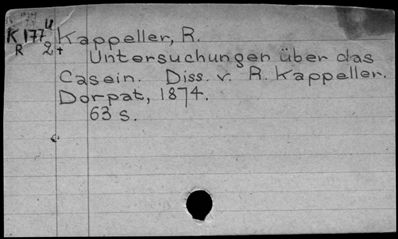 K 177 u Kappeller, R.
R 2+ Untersuchungen über das
Casein. Diss. v. R. Kappeller.
Dorpat, 1874.
63 s.